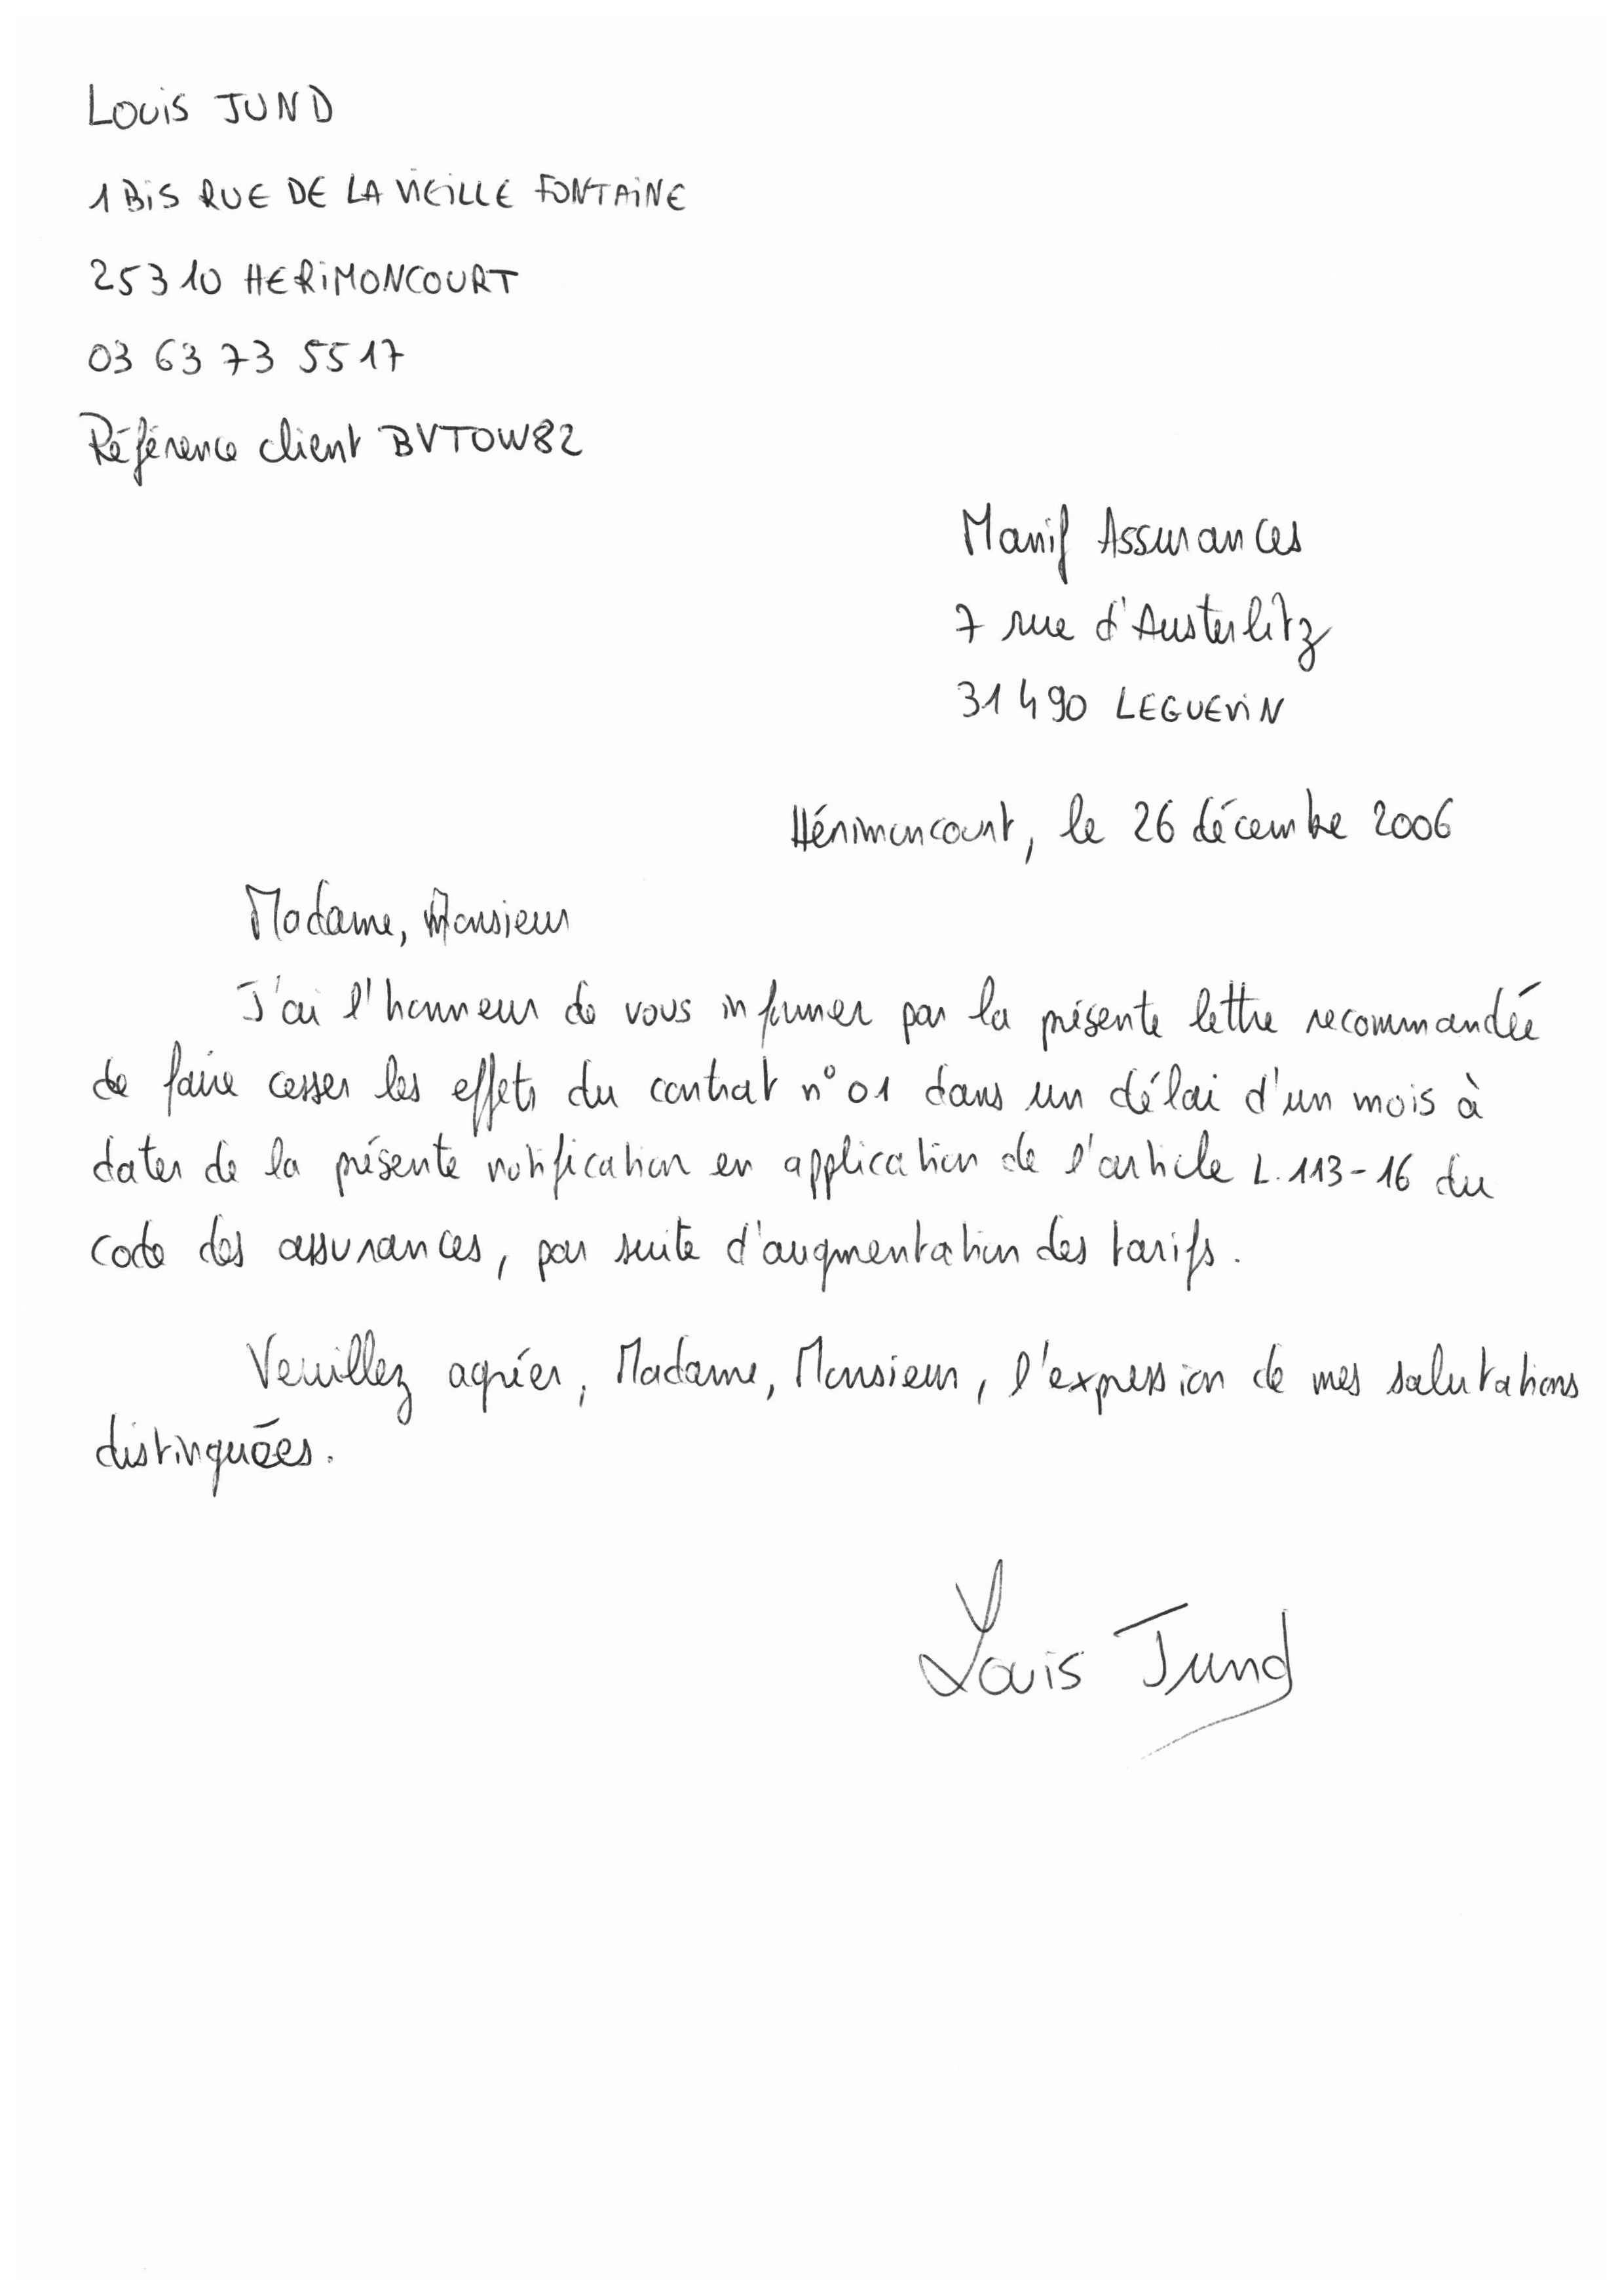 Louis JUND
1 BIS RUE DE LA VIEILLE FONTAINE
25310 HERIMONCOURT
03 63 73 55 17
Référence client BVTOW82
Manif Assurances
7 rue d'Austerlitz
31490 LEGUEVIN
Hérimoncourt, le 26 décembre 2006
Madame, Monsieur
J'ai l'honneur de vous informer par la présente lettre recommandée
de faire cesser les effets du contrat n°01 dans un délai d'un mois à
dater de la présente notification en application de l'article L.113-16 du
code des assurances, par suite d'augmentation des tarifs.
Veuillez agréer, Madame, Monsieur, l'expression de mes salutations
distinguées.
Louis Jund